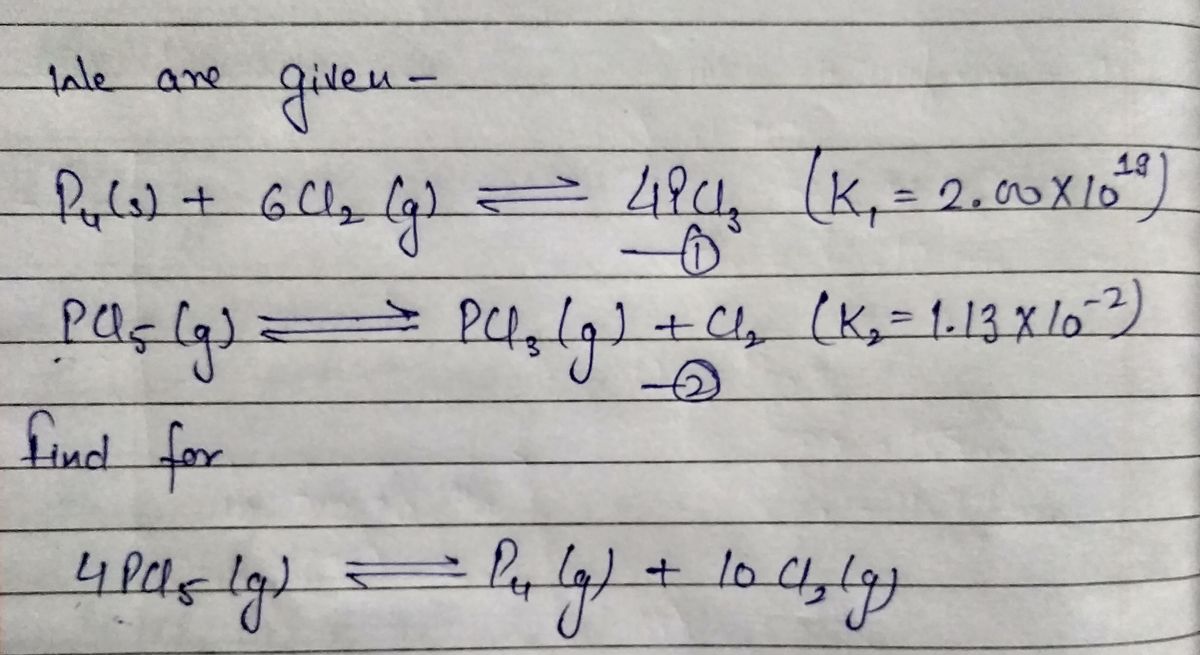 We are given -
P₄(s) + 6Cl₂ (g) ⇌ 4PCl₃ (K₁ = 2.00 X 10¹⁹)
—①
PCl₅ (g) ⇌ PCl₃ (g) + Cl₂ (K₂ = 1.13 X 10⁻²)
—②
find for
4 PCl₅ (g) ⇌ P₄ (g) + 10 Cl₂ (g)